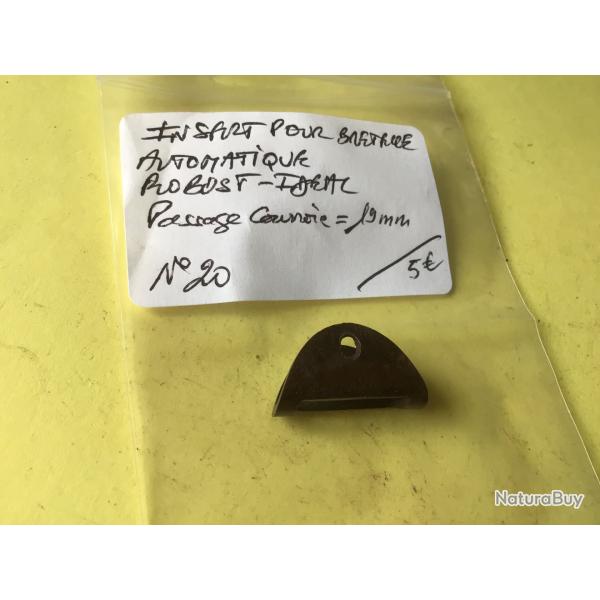 INSERT POUR BRETELLE
AUTOMATIQUE
ROBUST - IDEAL
Passage Courroie = 19mm
N° 20
/5€
NaturaBuy